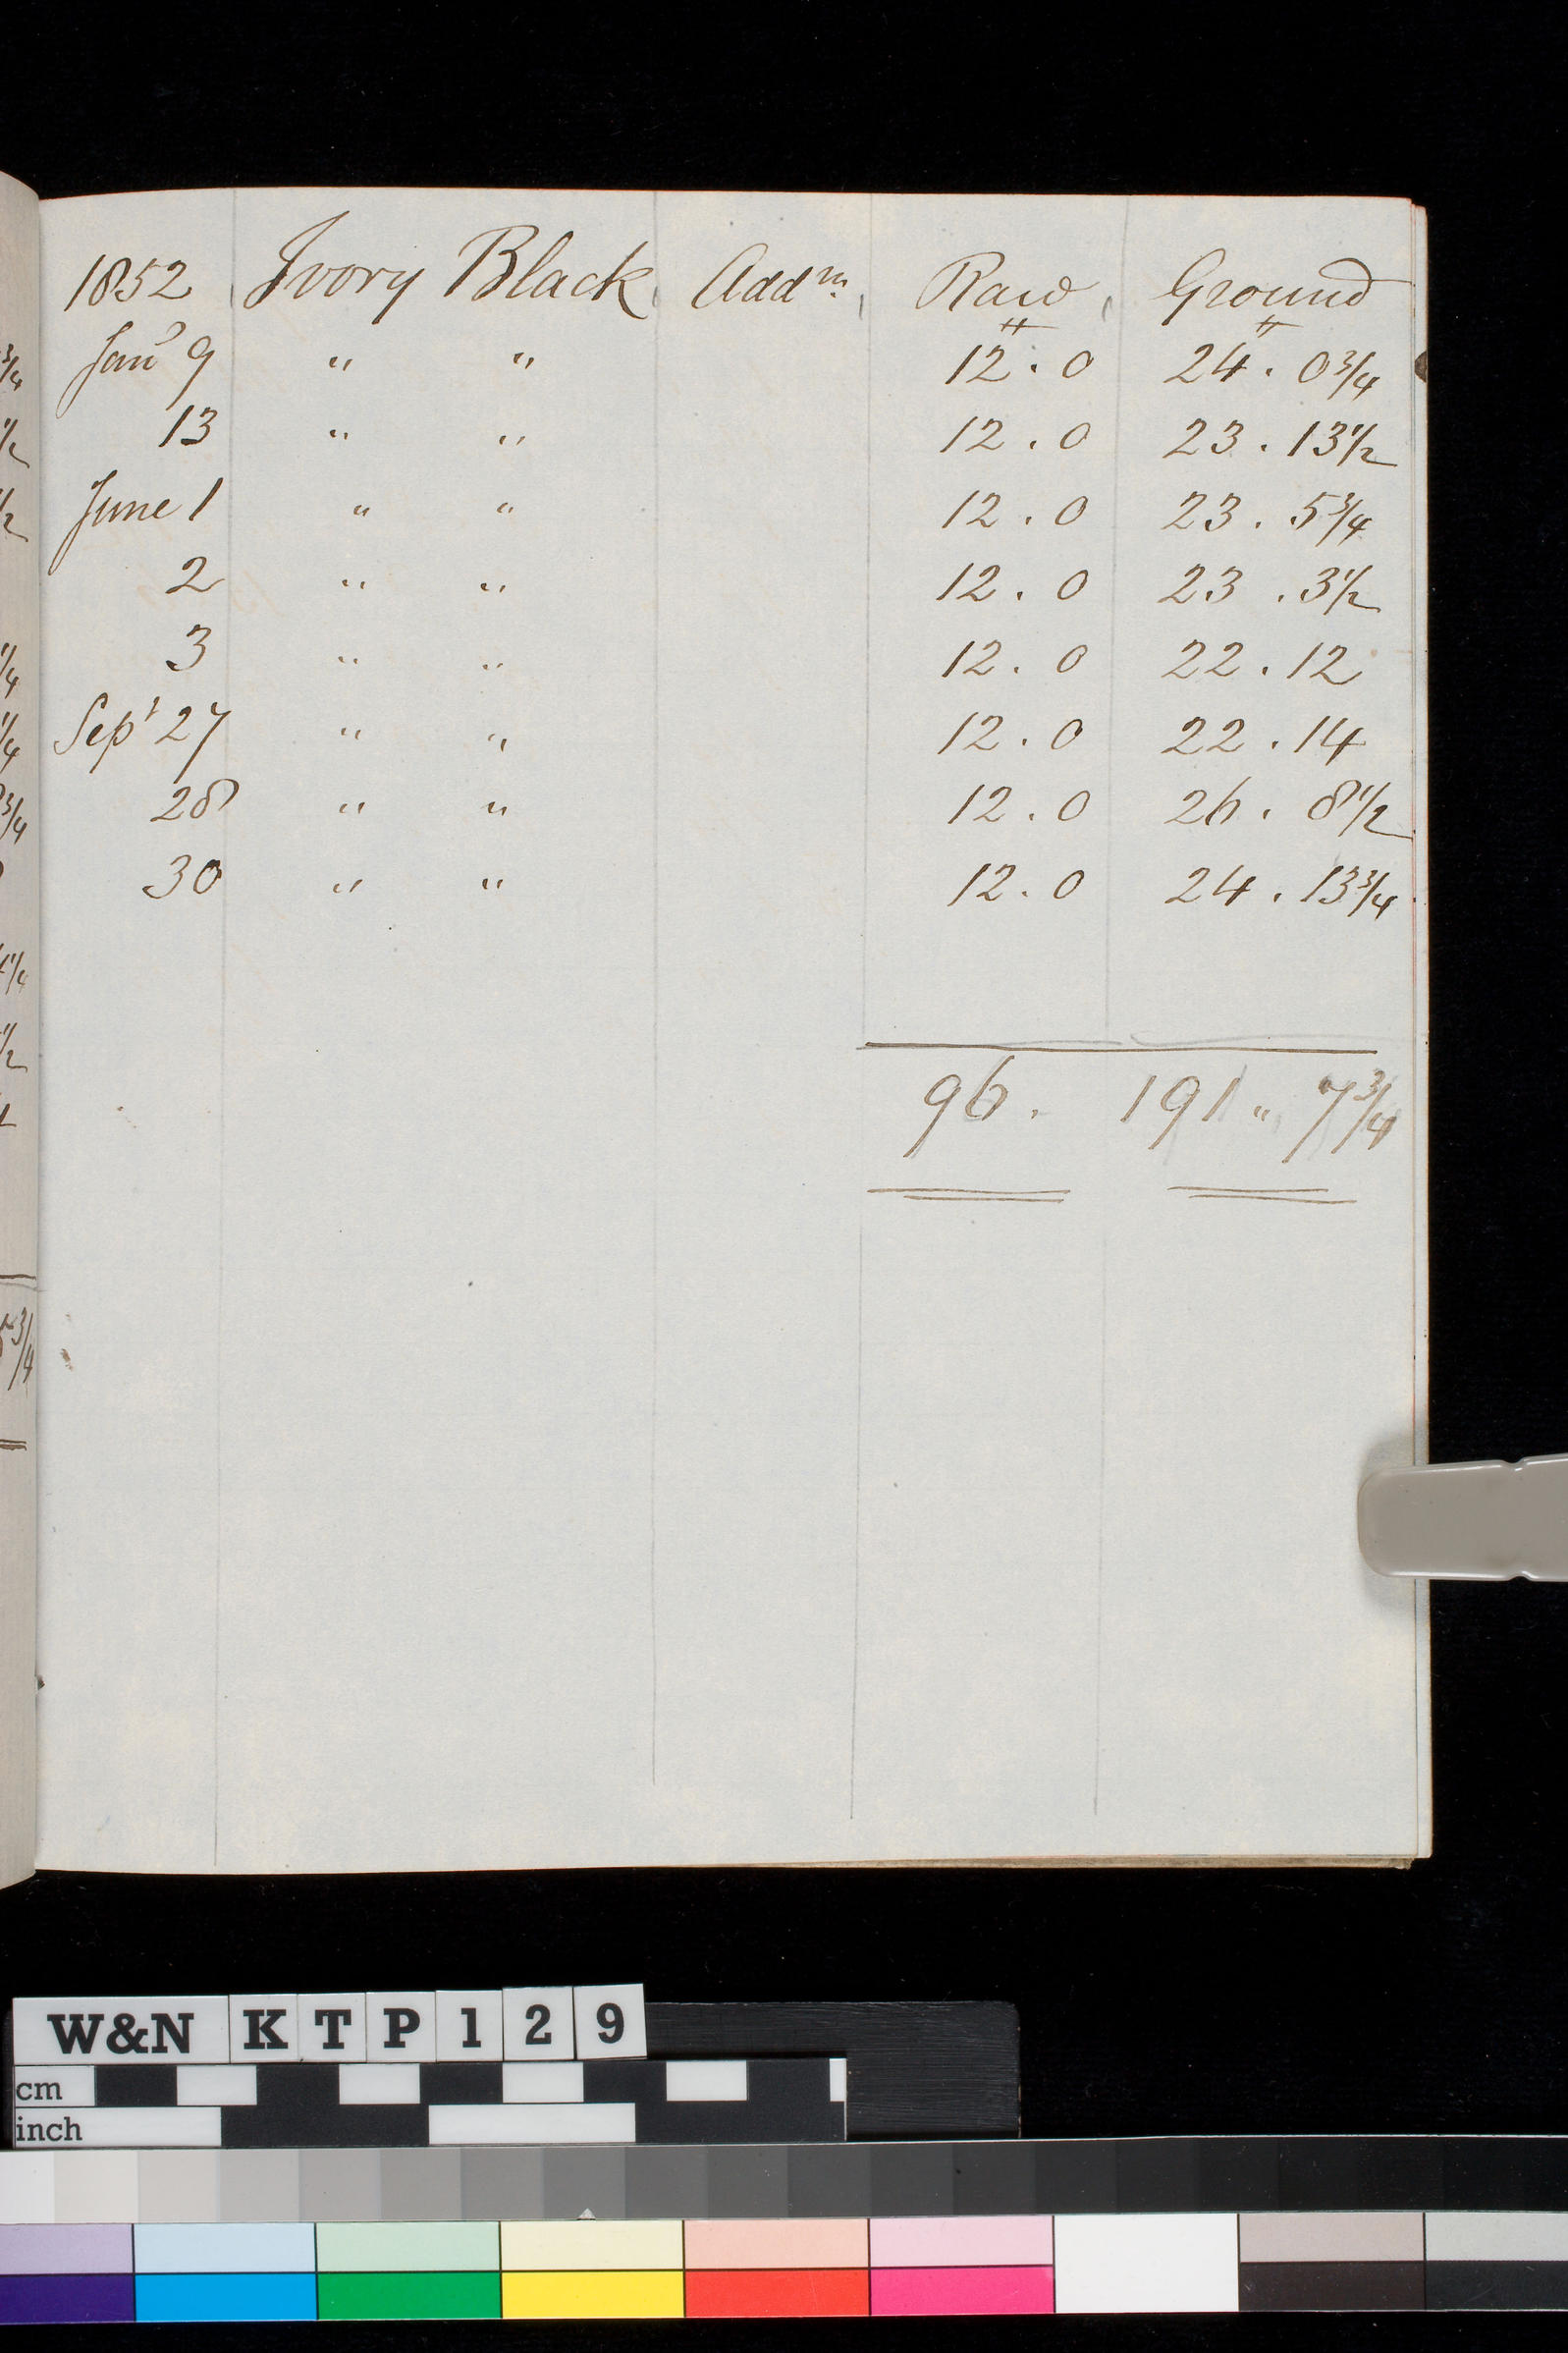 1852 Ivory Black Addn. Raw Ground
Jany 9 " " 12 . 0 24 . 0 3/4
13 " " 12 . 0 23 . 13 1/2
June 1 " " 12 . 0 23 . 5 3/4
2 " " 12 . 0 23 . 3 1/2
3 " " 12 . 0 22 . 12
Sept 27 " " 12 . 0 22 . 14
28 " " 12 . 0 26 . 8 1/2
30 " " 12 . 0 24 . 13 3/4
96 . 191 " 7 3/4
W&N KTP129
cm
inch